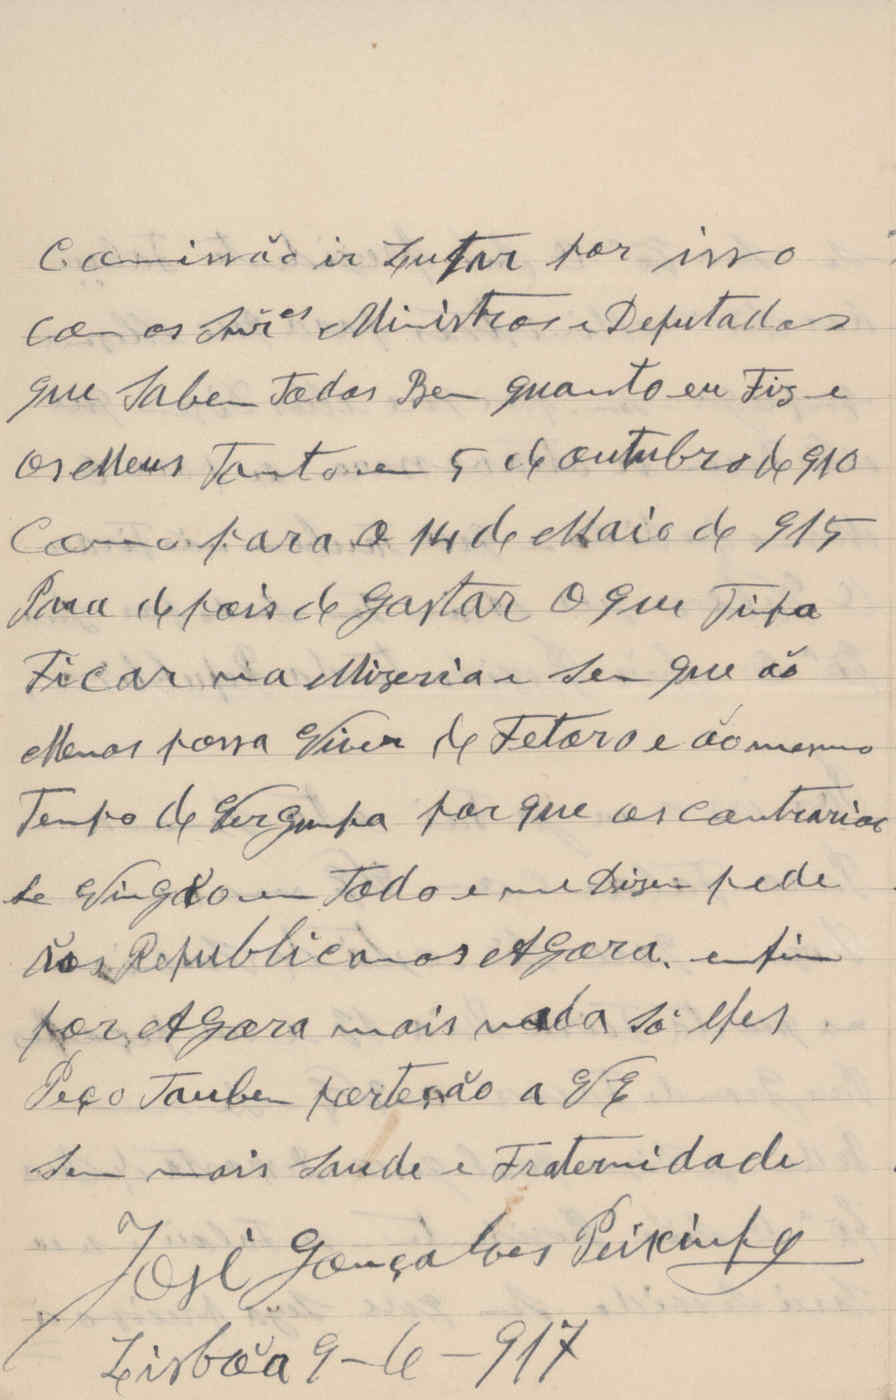 Comissão ir Lutar por isso
com os Snr.es Ministros e Deputados
que Saben Todos Ben quanto eu Fiz e
os Meus Tanto en 5 de outubro de 910
Como para o 14 de Maio de 915
Para depois de gastar o que Tinha
Ficar na Mizeria e Sen que ão
Menos possa Viver de Fetoro e ão mesmo
Tenpo de Vergunha por que os contrarios
se Vingão en Todo e me Dizen pede
ãos Republicanos Agora. enfin
por Agora mais nada Só lhes
Peço Tanben porteção a VE
Sen mais Saude e Fraternidade
José Gonçalves Peixinho
Lisbõa 9-6-917